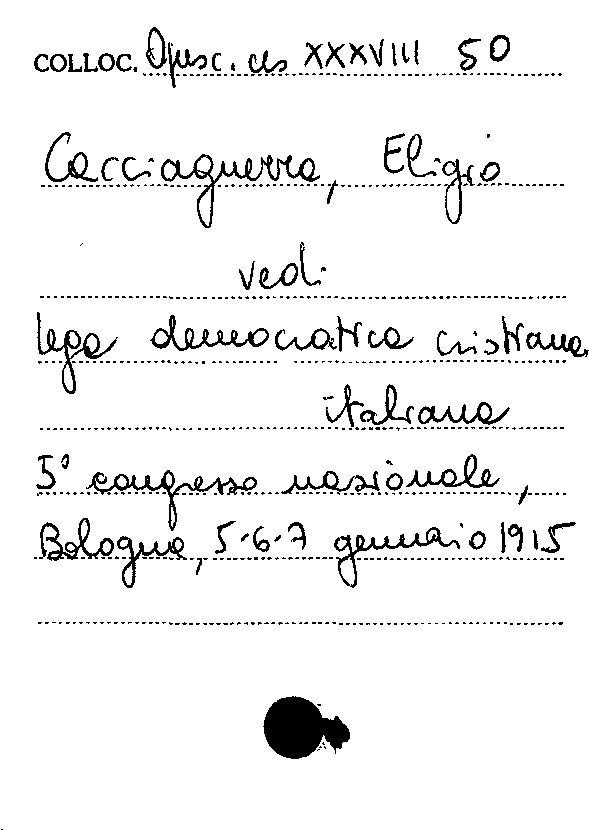 COLLOC. Opusc. ces XXXVIII 50
Cacciaguerra, Eligio
vedi
lega democratica cristiana
italiana
5° congresso nazionale,
Bologna, 5-6-7 gennaio 1915